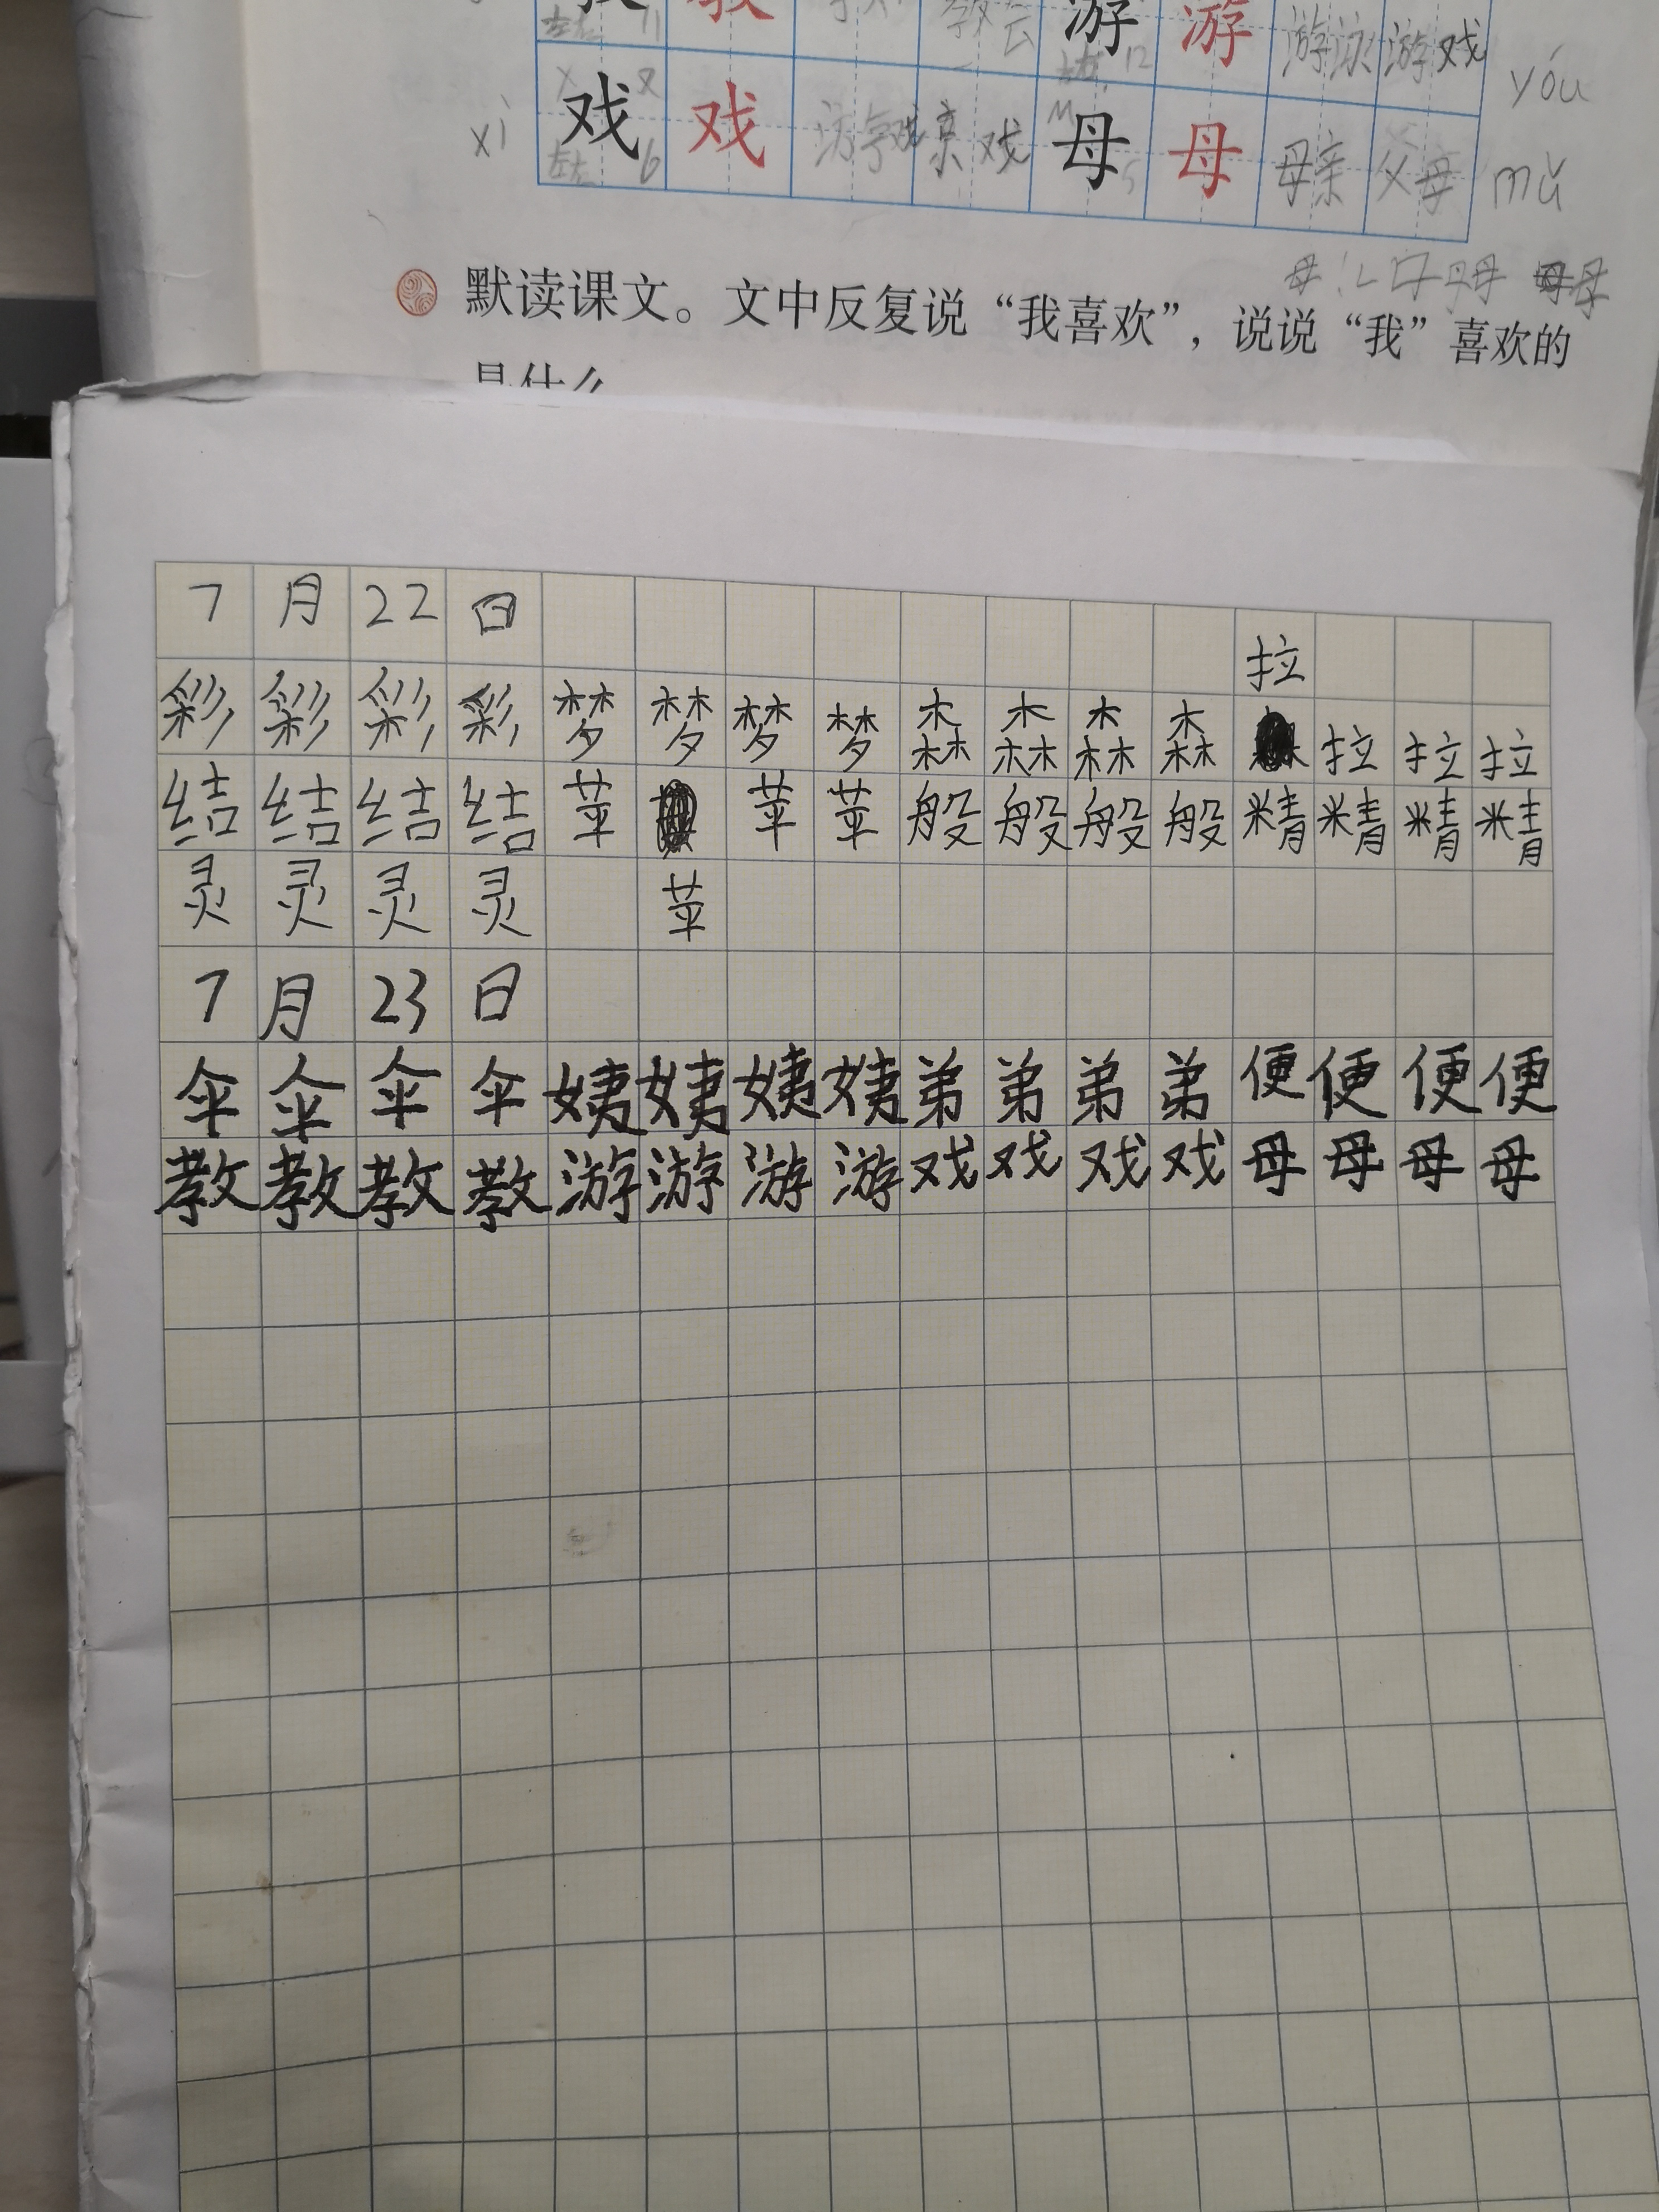 教 游 游 游泳 游戏 yóu
xì 戏 戏 游戏 京戏 母 母 母亲 父母 mǔ
左右 6 5
默读课文。文中反复说“我喜欢”，说说“我”喜欢的
是什么
7月22日
拉
彩彩彩彩梦梦梦梦森森森森拉拉拉
结结结结苹苹苹般般般般精精精精
灵灵灵灵苹
7月23日
伞伞伞伞姨姨姨姨弟弟弟弟便便便便
教教教教游游游游戏戏戏戏母母母母